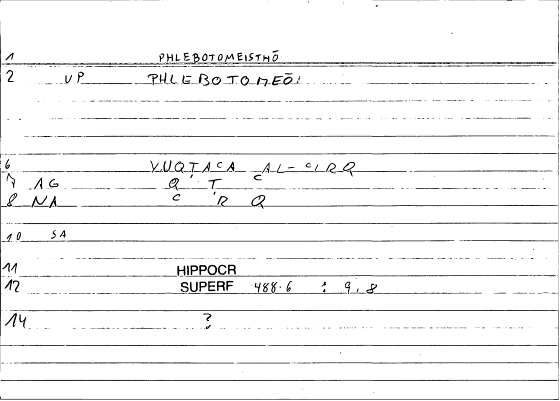 1 PHLEBOTOMEISTHŌ
2 VP PHLEBOTOMEŌ
6 VUQTACA AL-CIRQ
7 AG Q T C
8 NA C R Q
10 SA
11 HIPPOCR
12 SUPERF 488.6 : 9,8
14 ?